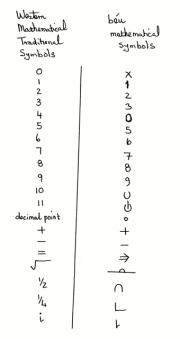 Western béu
Mathematical mathematical
Traditional Symbols
Symbols
0 x
1 1
2 2
3 3
4 0
5 5
6 6
7 7
8 8
9 9
10 U
11
decimal point °
+ +
- -
= ⇒
√
1/2 ∩
1/4 L
i